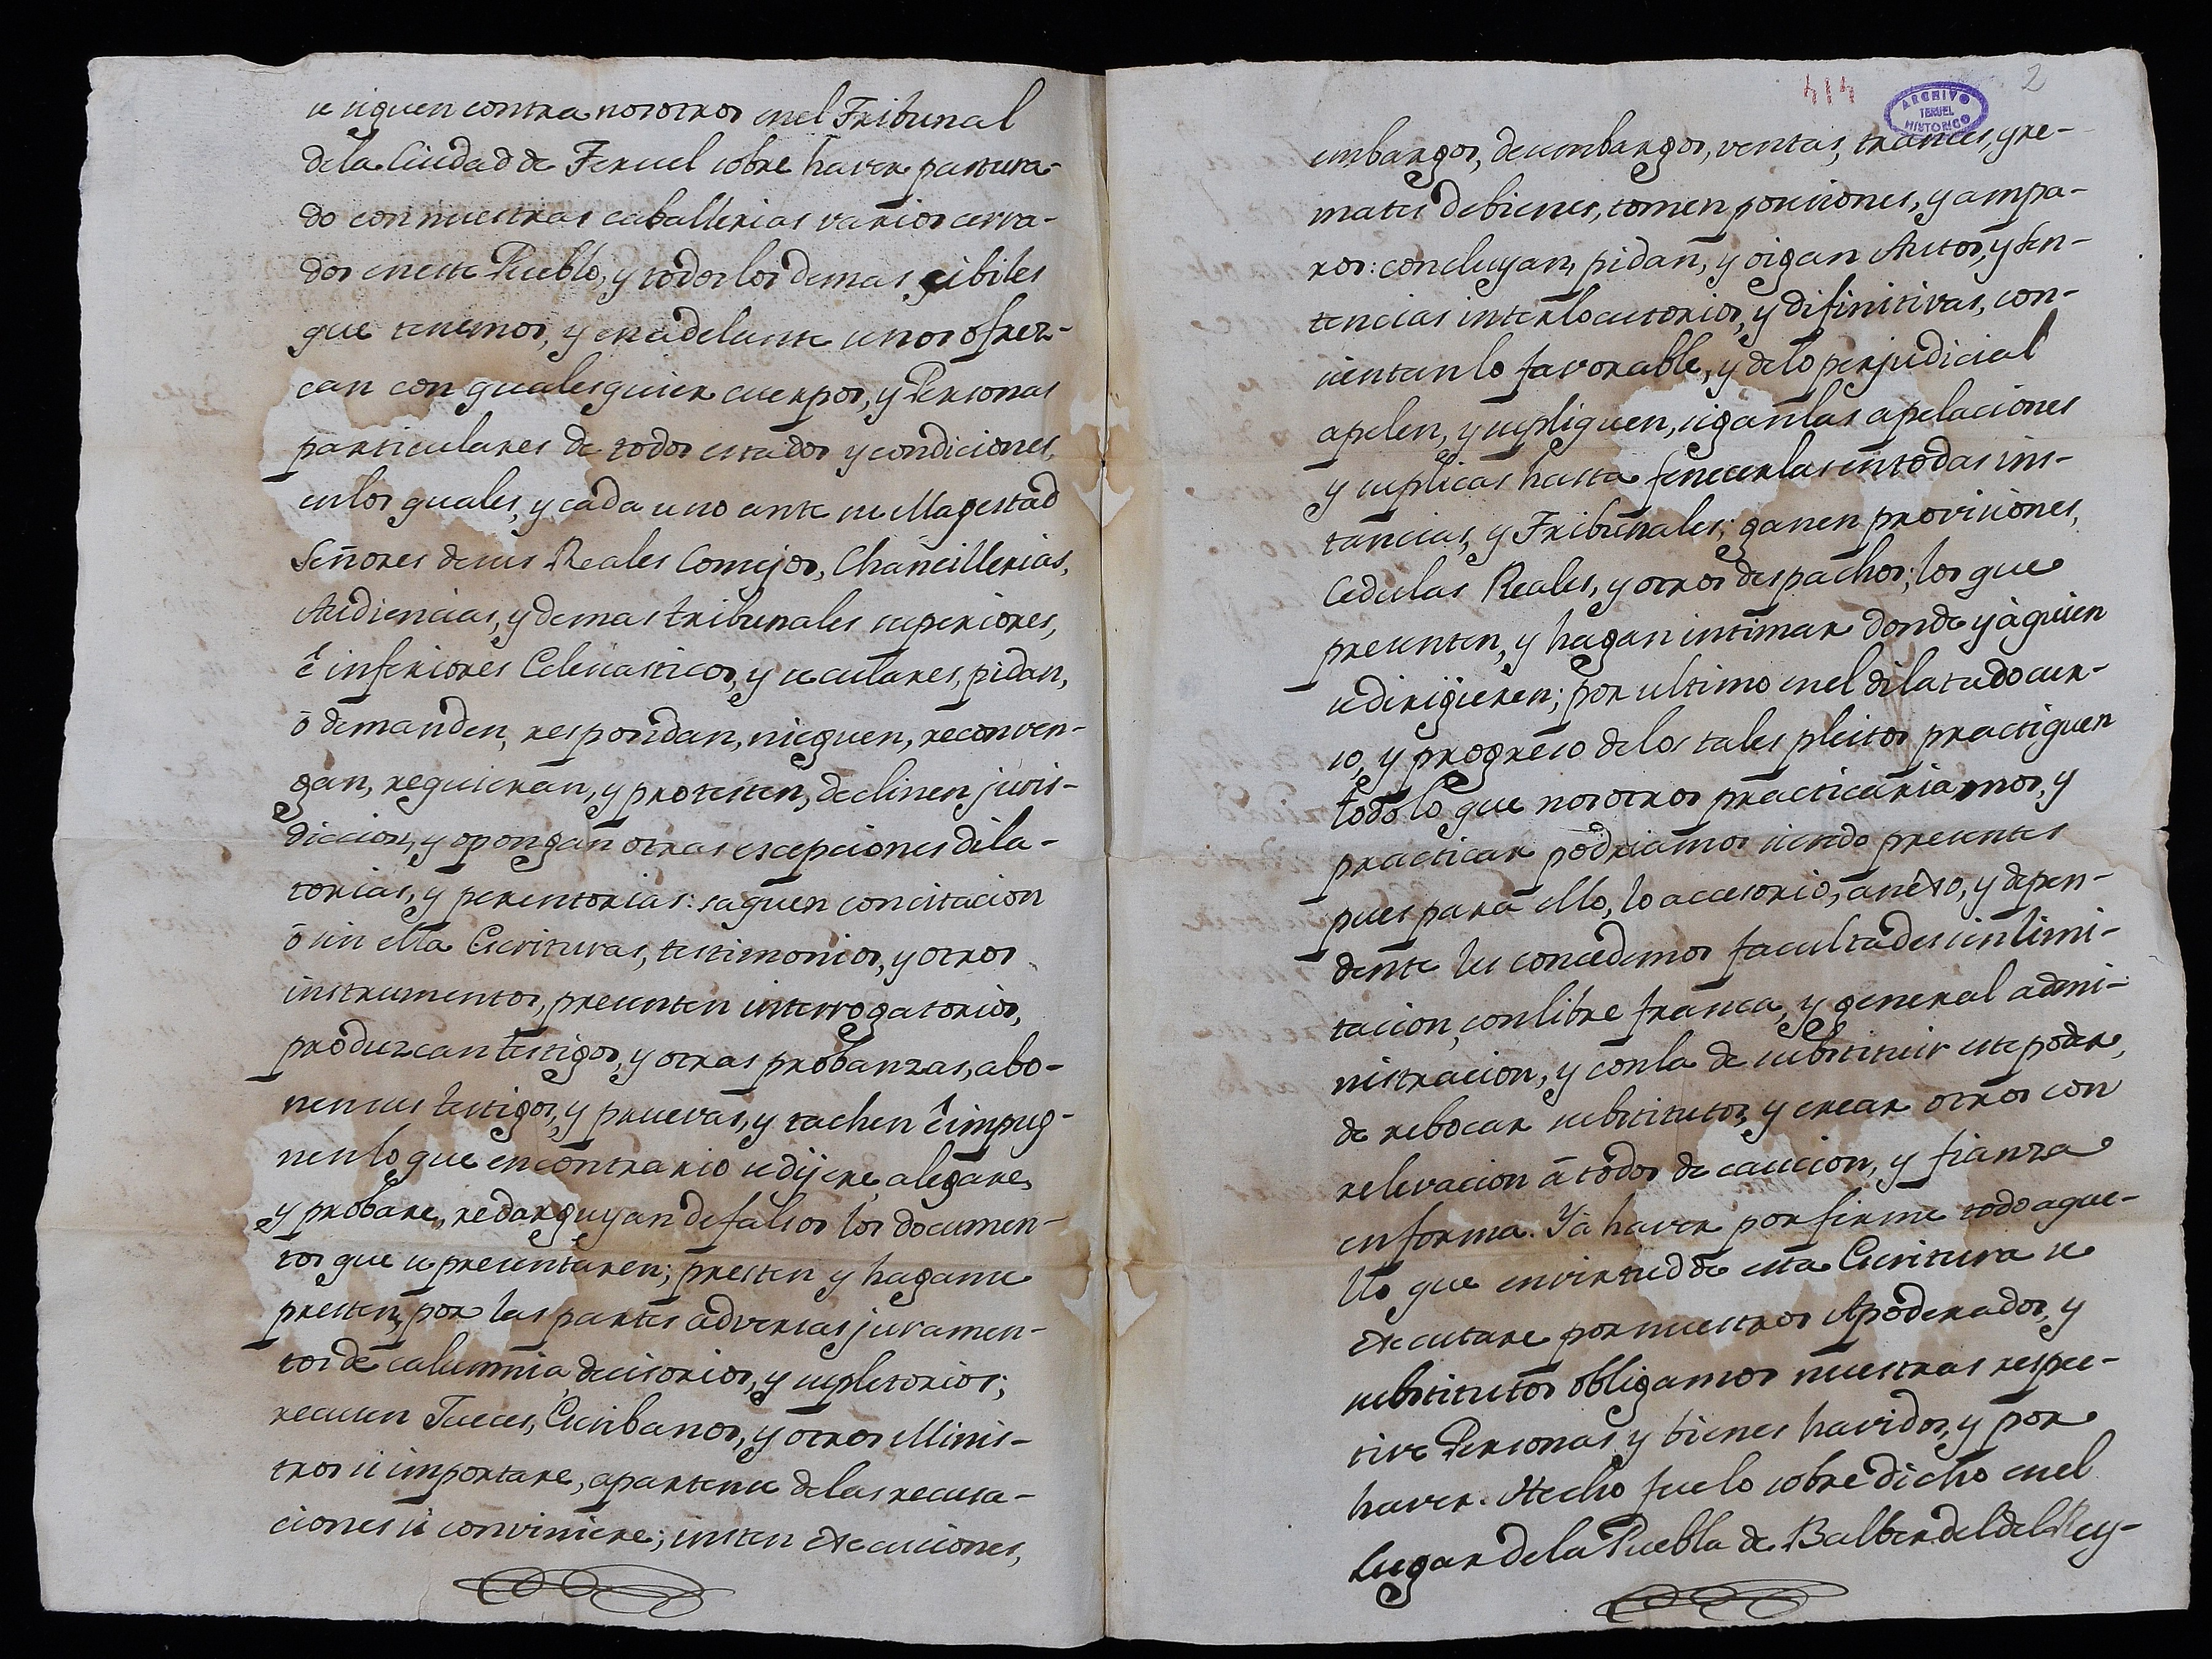 se siguen contra nosotros enel Tribunal
dela Ciudad de Teruel sobre haver pastura-
do con nuestras caballerias varios cerra-
dos eneste Pueblo, y todos los demas cibiles
que tenemos, y enadelante senos ofrez-
can con qualesquier cuerpos, y Personas
particulares de todos estados y condiciones,
enlos quales, y cada uno ante su Magestad
Señores desus Reales Consejos, Chancillerias,
Audiencias, y demas tribunales superiores,
ê inferiores Eclesiasticos, y seculares, pidan,
ô demanden, respondan, nieguen, reconven-
gan, requieran, y protesten, declinen juris-
diccion, y opongan otras escepciones dila-
torias, y perentorias: saquen concitacion
ô sin ella Escrituras, testimonios, y otros
instrumentos, presenten interrogatorios,
produzcan testigos, y otras probanzas, abo-
nen sus testigos, y pruevas, y tachen ê impug-
nen lo que encontrario sedijere, alegare,
y probare, redarguyan defalsos los documen-
tos que se presentaren; presten y hagan se
presten, por las partes adversas juramen-
tos de calumnia decisorios, y supletorios;
recusen Jueces, Escribanos, y otros Minis-
tros si importare, apartense delas recusa-
ciones si conviniere; insten execuciones,
414
2
ARCHIVO
TERUEL
HISTORICO
embargos, desembargos, ventas, trances, y re-
mates debienes, tomen posesiones, y ampa-
ros: concluyan, pidan, y oigan Autos, y Sen-
tencias interlocutorias, y difinitivas, con-
sientan lo favorable, y delo perjudicial
apelen, y supliquen, sigan las apelaciones
y suplicas hasta fenecerlas entodas ins-
tancias, y Tribunales; ganen provisiones,
Cedulas Reales, y otros despachos; los que
presenten, y hagan intimar donde y à quien
sedirigieren; por ultimo enel dilatado cur-
so, y progreso delos tales pleitos practiquen
todo lo que nosotros practicariamos, y
practicar podriamos siendo presentes
pues para ello, lo accesorio, anexo, y depen-
dente les concedemos facultades sin limi-
tacion, con libre franca, y general admi-
nistracion, y conla de substituir este poder,
de rebocar substitutos, y crear otros con
relevacion â todos de caucion, y fianza
en forma. Y à haver por firme todo aque-
llo que envirtud de esta Escritura se
executare por nuestros Apoderados, y
substitutos obligamos nuestras respec-
tive Personas, y bienes havidos, y por
haver. Hecho fue lo sobre dicho enel
Lugar dela Puebla de Balberde del Rey-